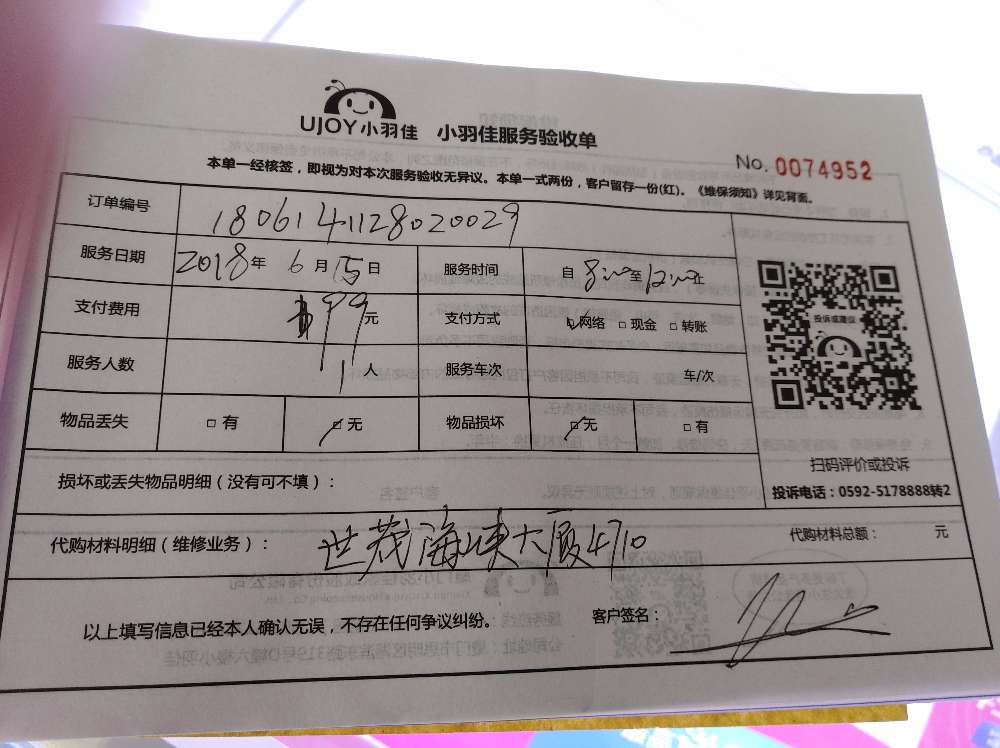 UJOY小羽佳 小羽佳服务验收单
No. 0074952
本单一经核签，即视为对本次服务验收无异议。本单一式两份，客户留存一份(红)。《维保须知》详见背面。
订单编号 1806141128020029
服务日期 2018年 6月15日 服务时间 自8:00至12:00止
支付费用 199元 支付方式 ☑网络 □现金 □转账
服务人数 1人 服务车次 车/次
物品丢失 □有 ☑无 物品损坏 ☑无 □有
投诉或建议
扫码评价或投诉
投诉电话：0592-5178888转2
损坏或丢失物品明细（没有可不填）：
代购材料明细（维修业务）： 世茂海峡大厦4710 代购材料总额： 元
以上填写信息已经本人确认无误，不存在任何争议纠纷。 客户签名：